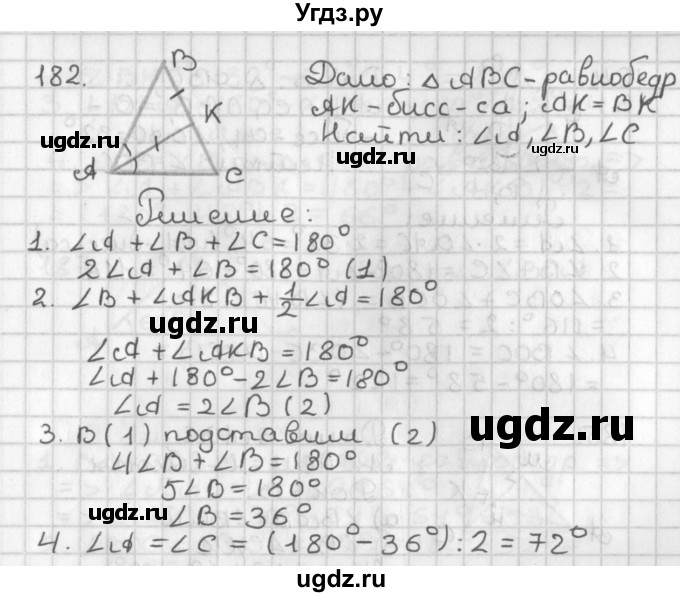 Угдз.ру
182. B K A C
Дано: △ ABC - равнобедр
AK - бисс-са; AK = BK
Найти: ∠A, ∠B, ∠C
ugdz.ru ugdz.ru ugdz.ru
Решение:
1. ∠A + ∠B + ∠C = 180°
2∠A + ∠B = 180° (1)
2. ∠B + ∠AKB + 1/2 ∠A = 180°
ugdz.ru
∠A + ∠AKB = 180°
∠A + 180° - 2∠B = 180°
∠A = 2∠B (2)
ugdz.ru
3. В (1) подставим (2)
4∠B + ∠B = 180°
5∠B = 180°
ugdz.ru ∠B = 36°
4. ∠A = ∠C = (180° - 36°) : 2 = 72°
ugdz.ru